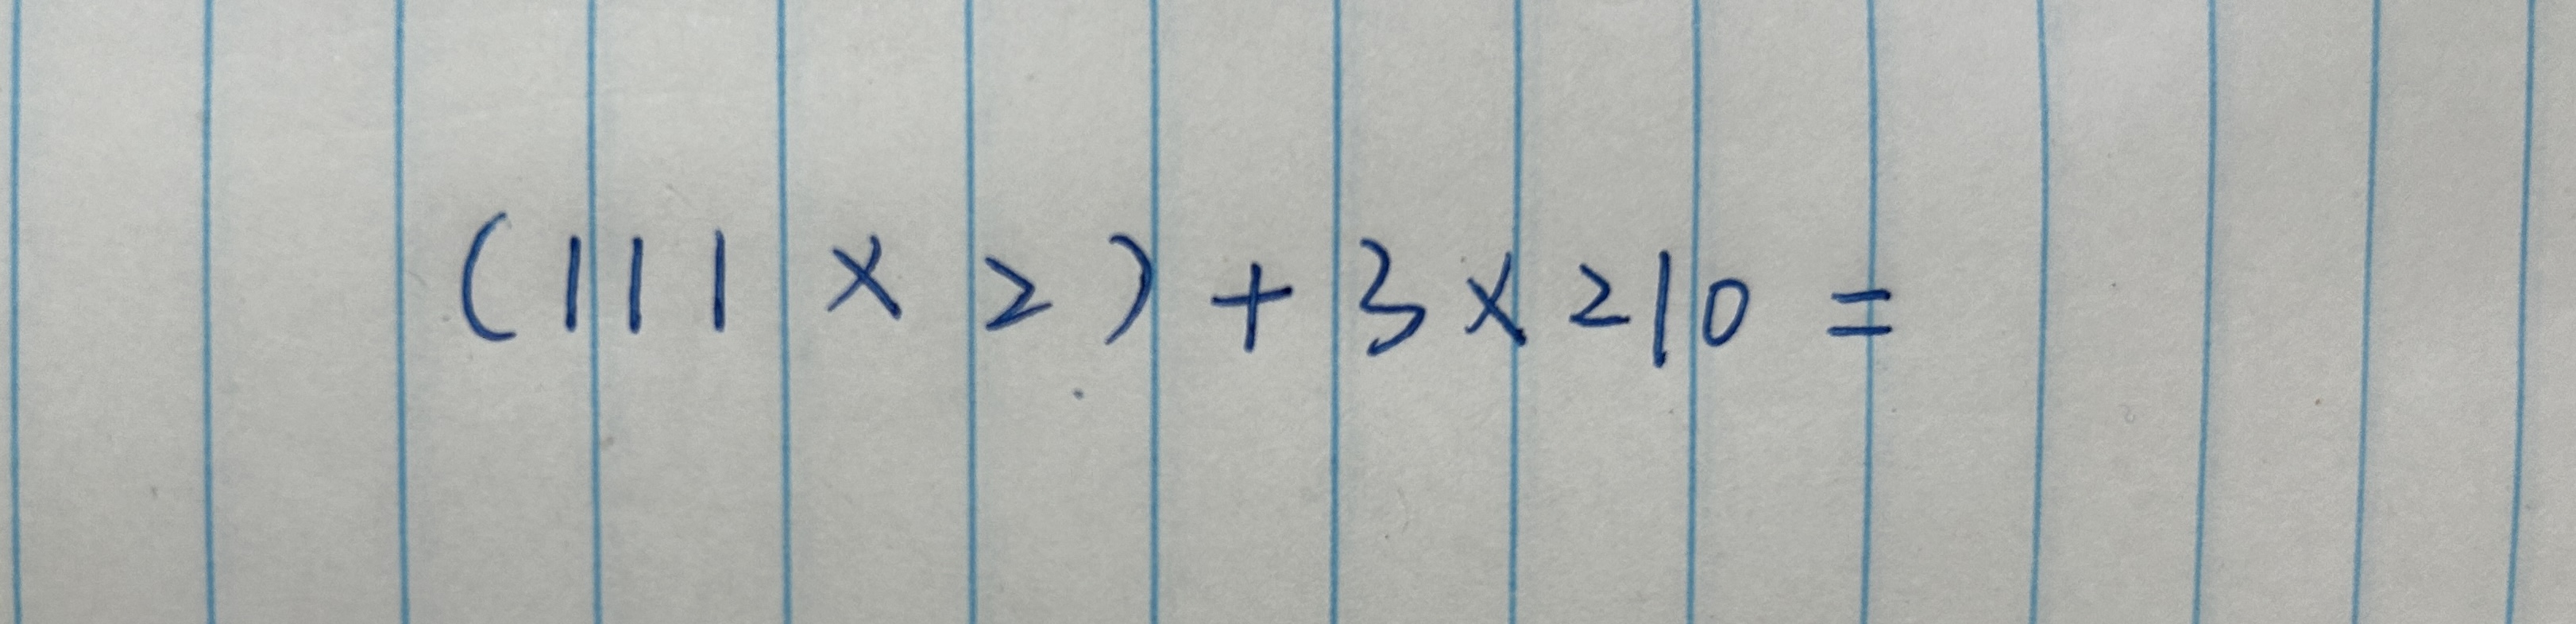 (111 × 2) + 3 × 210 =